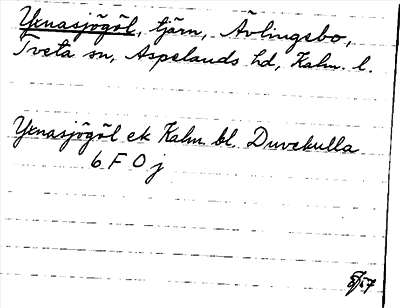 Yxnasjögöl, tjärn, Ävlingebo,
Tveta sn, Aspelands hd, Kalm. l.
Yxnasjögöl ek Kalm. bl. Duvekulla
6 F 0 j